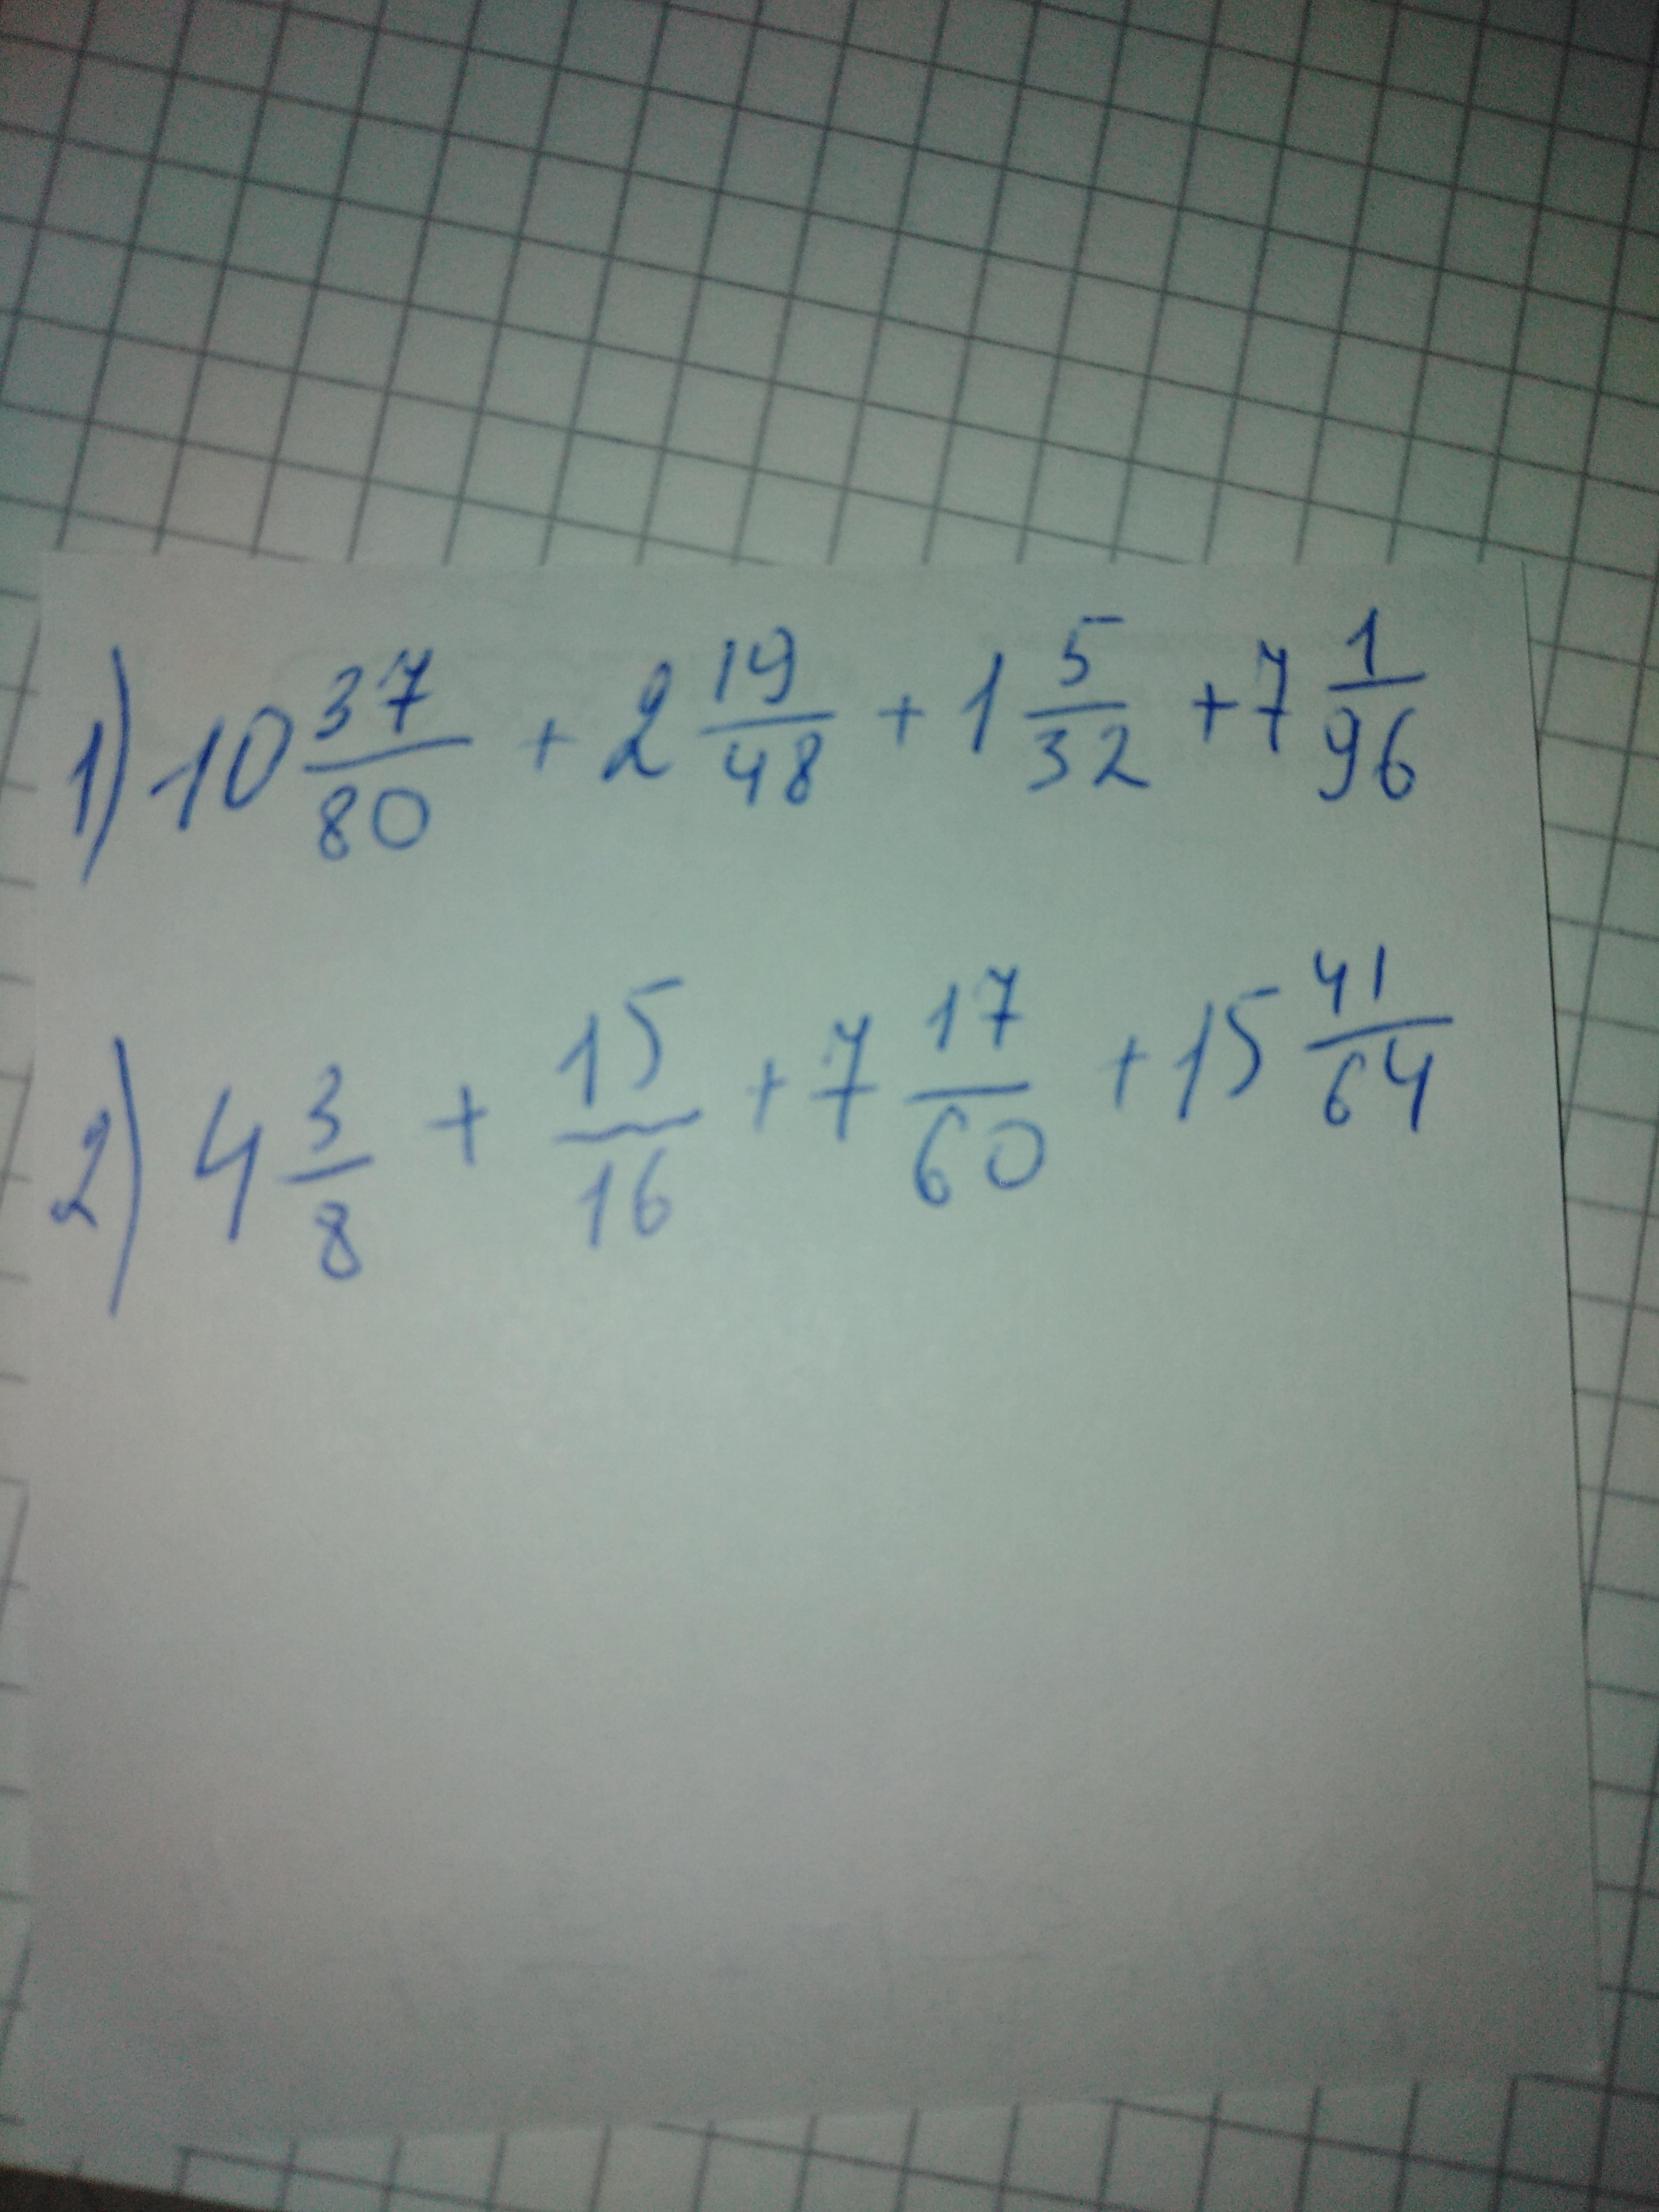 1) 10 37/80 + 2 19/48 + 1 5/32 + 7 1/96
2) 4 3/8 + 15/16 + 7 17/60 + 15 41/64